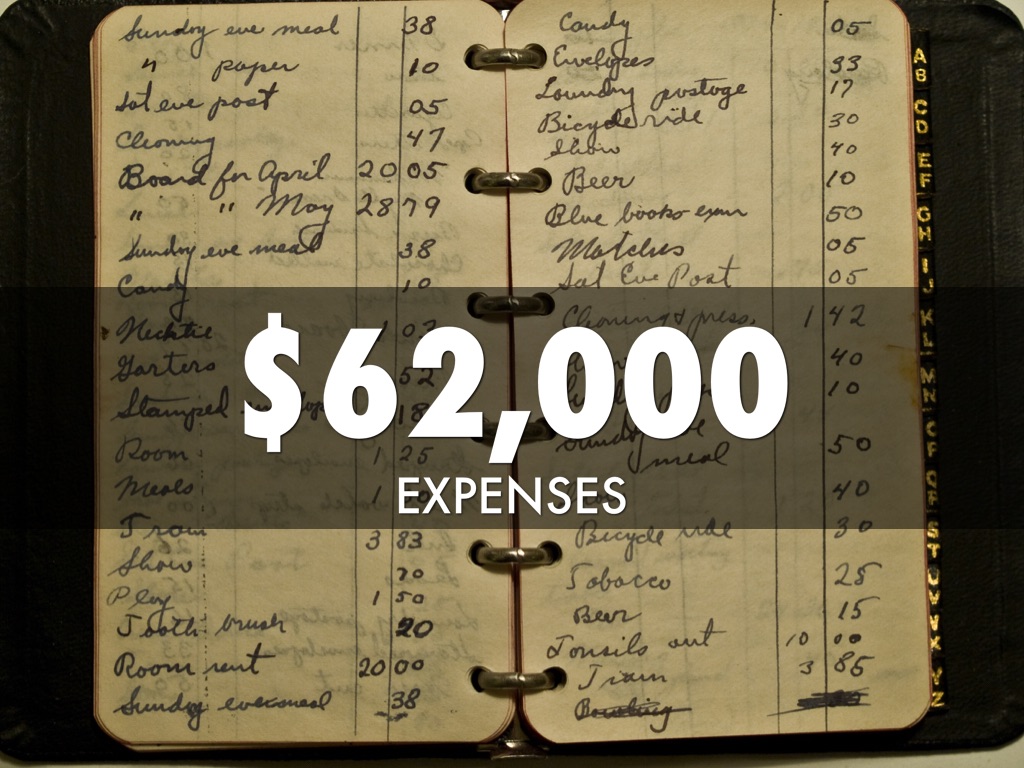 Sunday eve meal 38
" paper 10
Sat eve post 05
Cleaning 47
Board for April 20 05
" " May 28 79
Sunday eve meal 38
Candy 10
Necktie 1 02
Garters 52
Stamped 18
Room 1 25
Meals 1
Train 3 83
Show 70
Play 1 50
Tooth brush 20
Room rent 20 00
Sunday eve meal 38
Candy 05
Envelopes 33
Laundry postage 17
Bicycle ride 30
Show 40
Beer 10
Blue books exam 50
Matches 05
Sat Eve Post 05
Cleaning & press. 1 42
40
10
Sunday eve
meal 50
40
Bicycle ride 30
Tobacco 25
Beer 15
Tonsils out 10 00
Train 3 85
Bowling
$62,000
EXPENSES
A
B
C
D
E
F
G
H
I
J
K
L
M
N
S
T
U
V
W
X
Y
Z